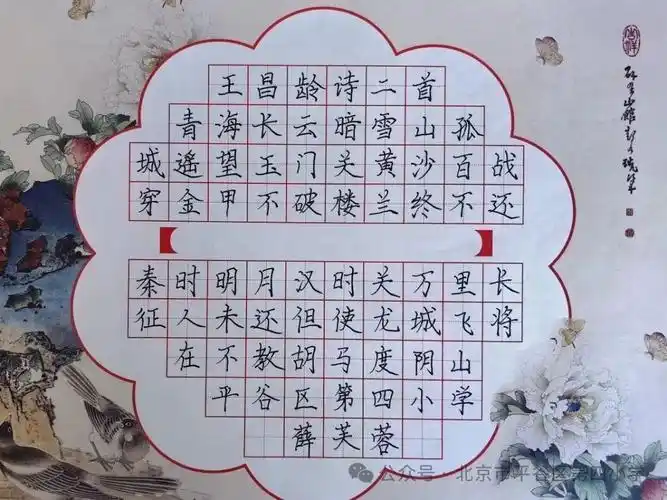 王昌龄诗二首
青海长云暗雪山孤
城遥望玉门关黄沙百战
穿金甲不破楼兰终不还
秦时明月汉时关万里长
征人未还但使龙城飞将
在不教胡马度阴山
平谷区第四小学
薛芙蓉
公众号·北京市平谷区第四小学